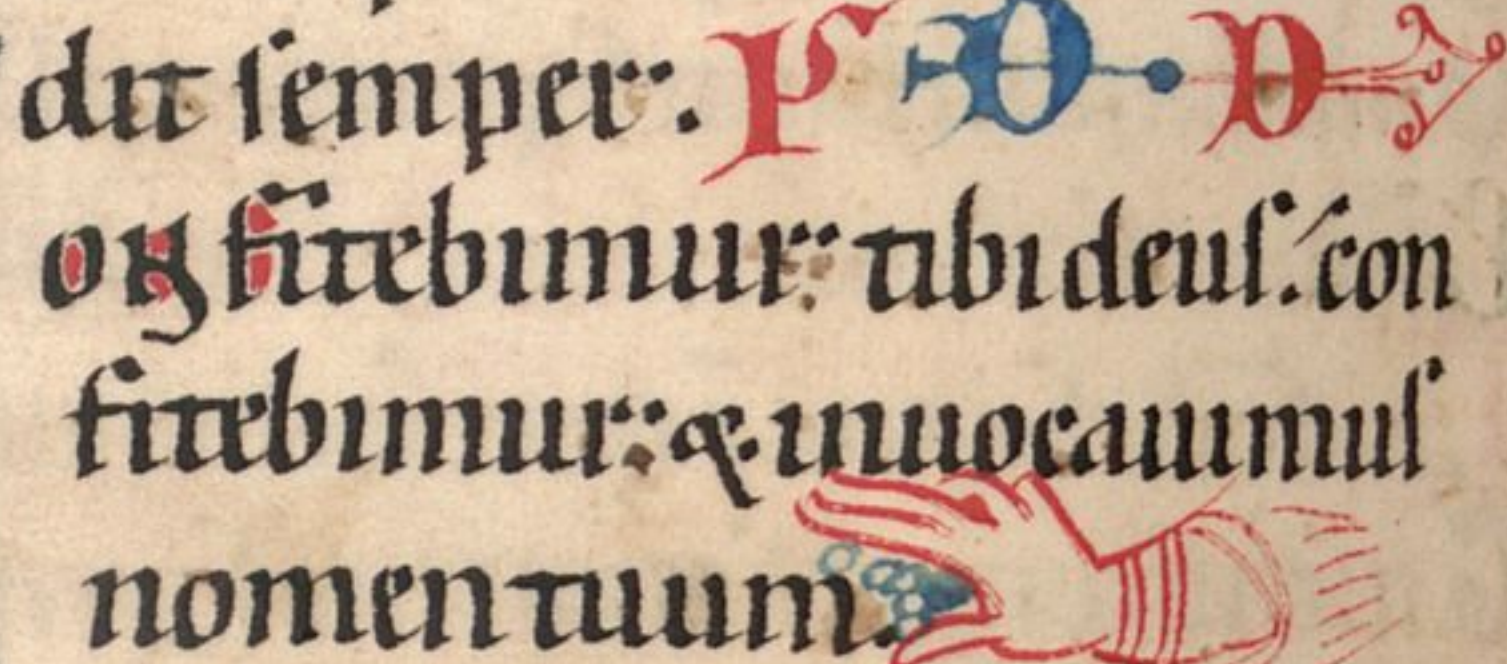 dit ſemper: P D D
oN fitebimur tibi deuſ. con
fitebimur & inuocauimuſ
nomen tuum.